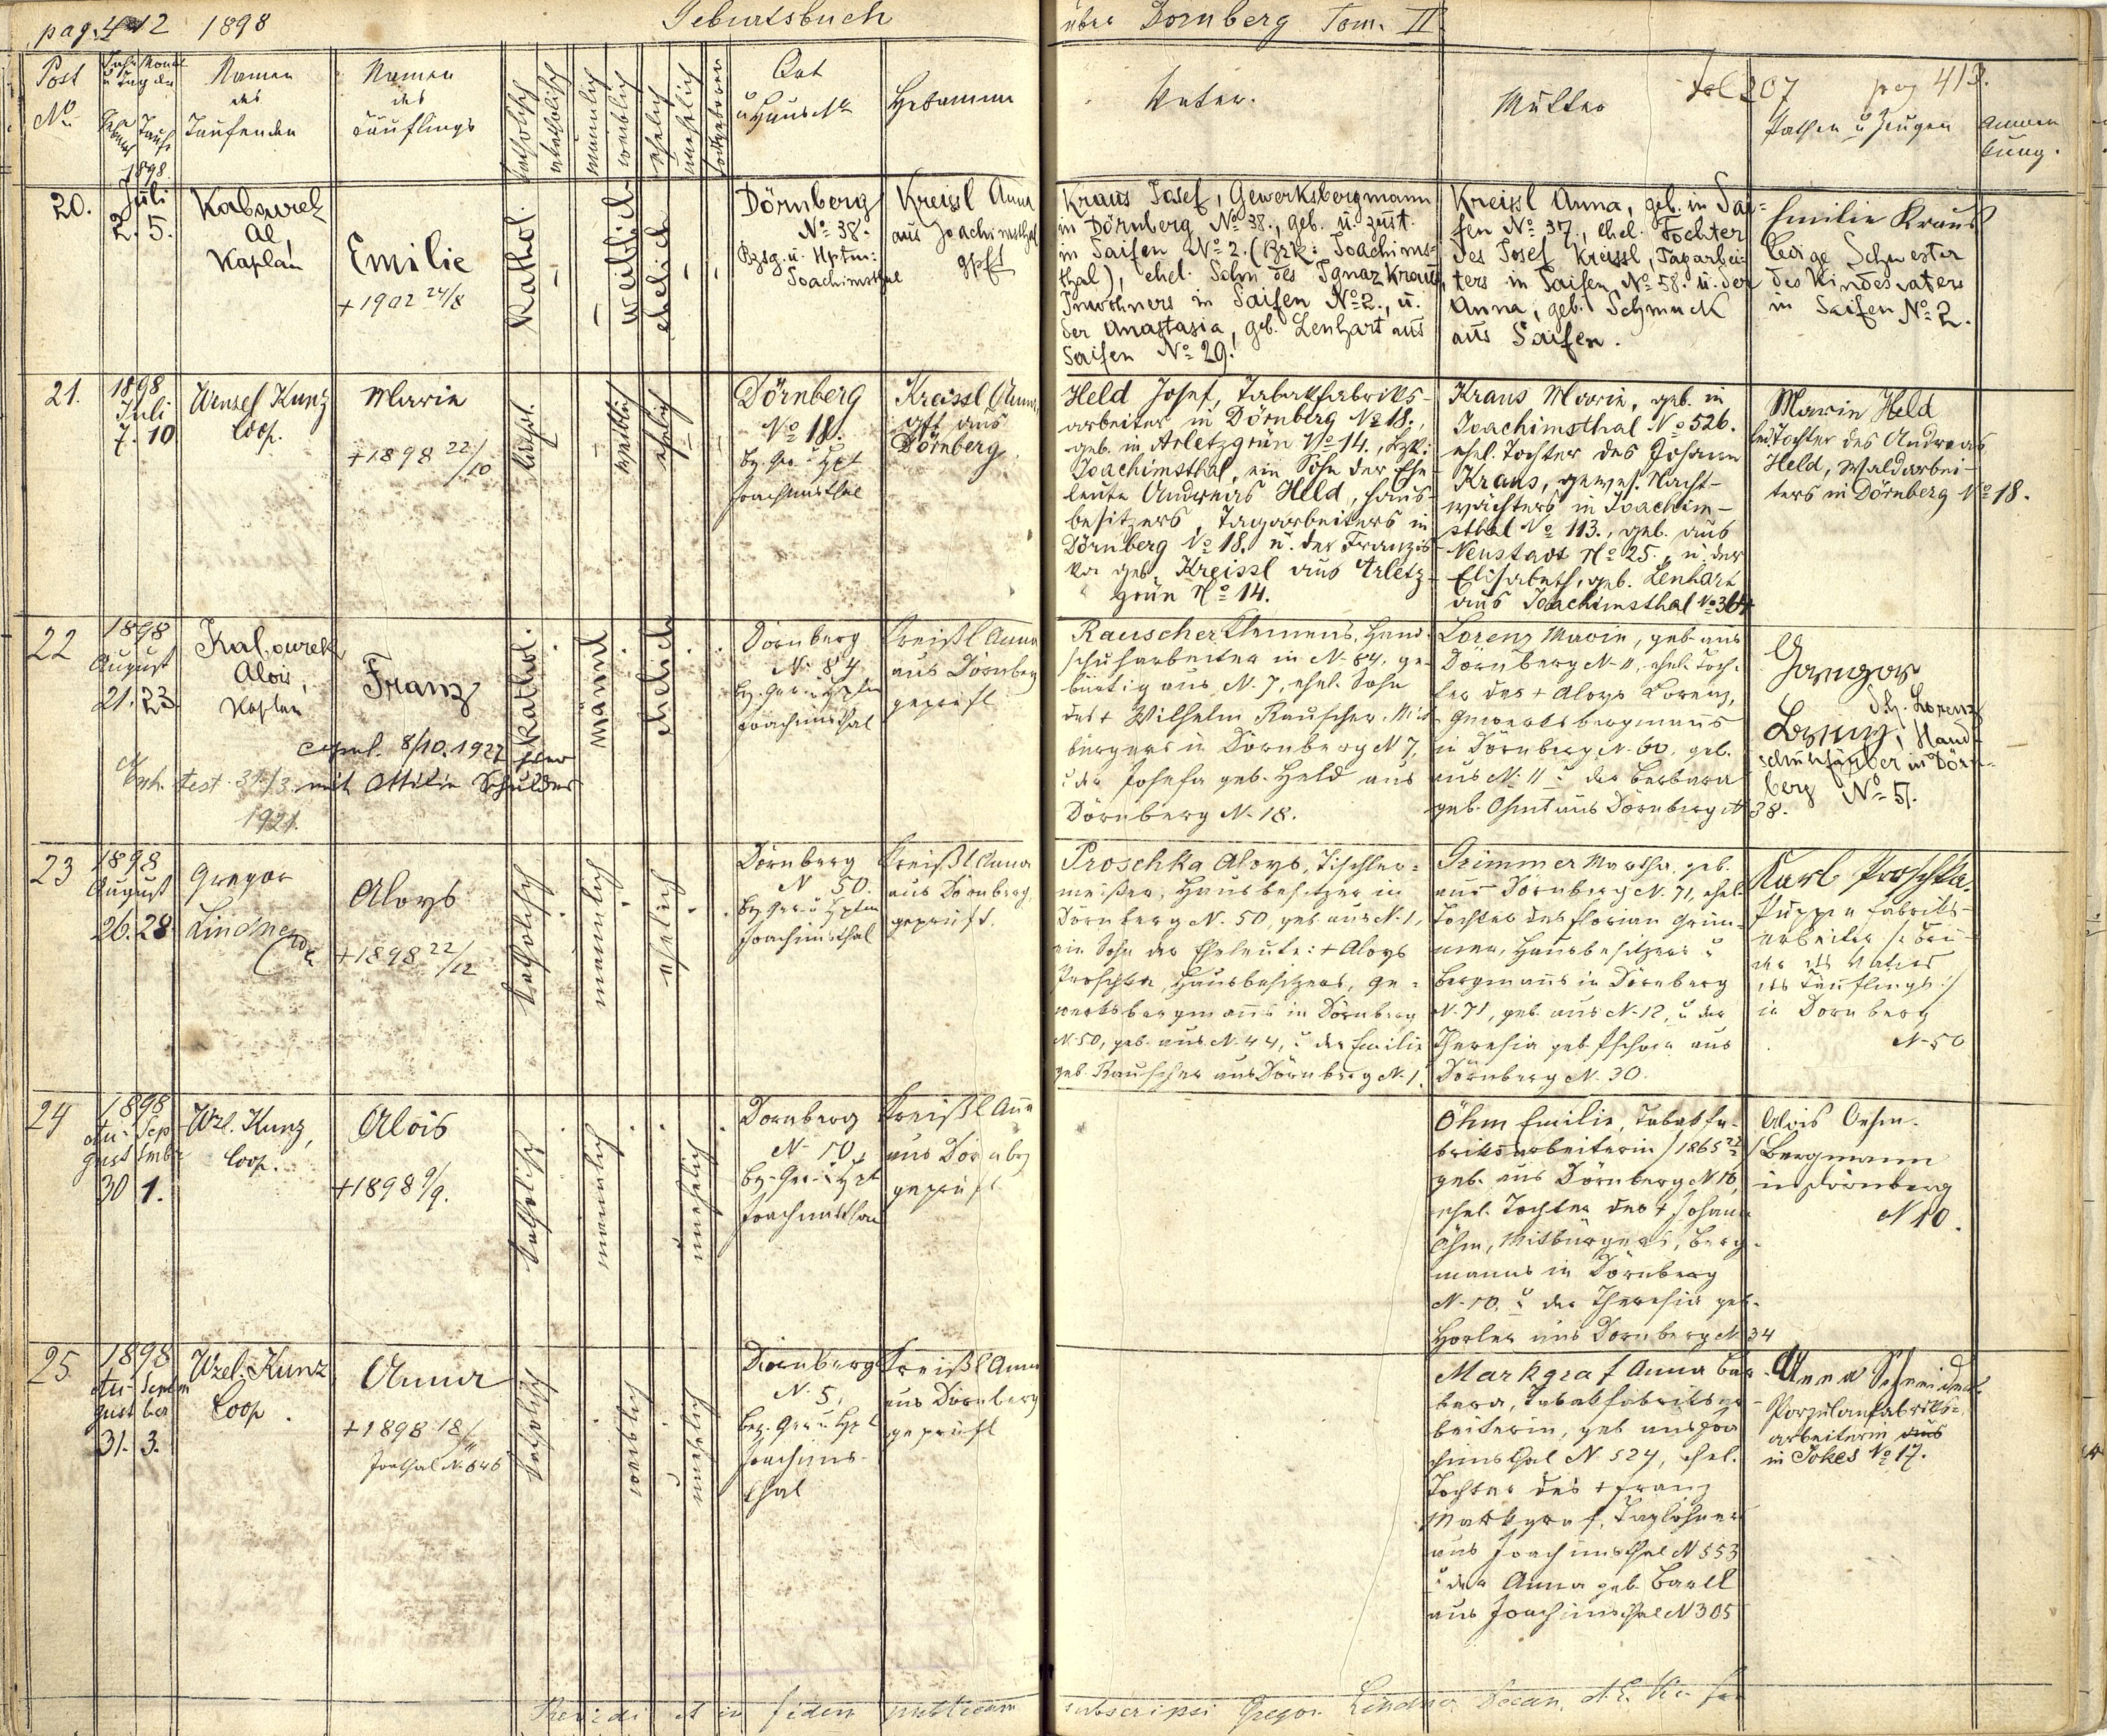 pag. 412 1898 Geburtsbuch über Dörnberg Tom. II.
fol 207 pag 413.
Post No
Jahr Monat u Tag der
Geburt Taufe
Namen des Taufenden
Namen des Täuflings
katholisch
akatholisch
männlich
weiblich
ehelich
unehelich
todtgeboren
Ort u Haus No
Hebamme
Vater.
Mutter
Pathen u Zeugen
Anmerkung.
20.
1898.
Juli
2. 5.
Kabourek
Al,
Kaplan
Emilie
+ 1902 24/8
Kathol.
weiblich
ehelich
Dörnberg
No 38.
Bzsg. u. Hptm:
Joachimsthal
Kreissl Anna
aus Joachimsthal
gpft
Kraus Josef, Gewerksbergmann
in Dörnberg No 38., geb. u. zust.
in Saifen No 2. (Bzk: Joachims-
thal), ehel. Sohn des Ignaz Kraus,
Inwohners in Saifen No 2., u.
der Anastasia, geb. Lenhart aus
Saifen No 29!
Kreissl Anna, geb. in Sai=
fen No 37., ehel. Tochter
des Josef Kreissl, Tagarbei-
ters in Saifen No 58. u. der
Anna, geb. Schmuck
aus Saifen.
Emilie Kraus
ledige Schwester
des Kindesvaters
in Saifen No 2.
21.
1898
Juli
7. 10
Wenzel Kunz
Coop.
Marie
+ 1898 22/10
kathol.
weiblich
ehelich
Dörnberg
No 18.
bz. Ger. u Hpt
Joachimsthal
Kreissl Anna,
gft aus
Dörnberg.
Held Josef, Tabakfabriks-
arbeiter in Dörnberg No 18.,
geb. in Arletzgrün No 14., Bzk:
Joachimsthal, ein Sohn der Ehe-
leute Andreas Held, Haus-
besitzers, Tagarbeiters in
Dörnberg No 18. u. der Franzis-
ka geb. Kreissl aus Arletz-
grün No 14.
Kraus Marie, geb. in
Joachimsthal No 526.
ehel. Tochter des Johann
Kraus, gewes. Nacht-
wächters in Joachim-
sthal No 113., geb. aus
Neustadt No 25., u der
Elisabeth, geb. Lenhart
aus Joachimsthal No 364
Marie Held
led Tochter des Andreas
Held, Waldarbei-
ters in Dörnberg No 18.
22
1898
August
21. 23
Kabourek
Alois,
Kaplan
Franz
copul. 8/10. 1927 hier
mit Ottilie Schulder
test. 31/3.
1921.
Kathol.
männl
ehelich
Dörnberg
N. 84
bz. Ger. u Hptm
Joachimsthal
Kreißl Anna
aus Dörnberg
geprüft
Rauscher Klemens, Hand-
schuharbeiter in N. 84, ge-
bürtig aus N. 7, ehel. Sohn
des + Wilhelm Rauscher, Mit-
bürgers in Dörnberg N 7,
u der Josefa geb. Held aus
Dörnberg N. 18.
Lorenz Marie, geb. aus
Dörnberg N. 11, ehel. Toch-
ter des + Aloys Lorenz,
Gewerksbergmans
in Dörnberg N. 60, geb.
aus N. 11 u der Barbara
geb. Ohmt aus Dörnberg N 38.
Lorenz
Lorenz, Hand-
schuhfärber in Dörn-
berg No 51.
23
1898
August
26. 28.
Gregor
Lindner
Aloys
+ 1898 22/12
katholisch
männlich
ehelich
Dörnberg
N 50.
bz. Ger. u Hptm
Joachimsthal
Kreißl Anna
aus Dörnberg,
geprüft.
Proschka Aloys, Tischler=
meister, Hausbesitzer in
Dörnberg N. 50, geb. aus N. 1,
ein Sohn der Eheleute: + Aloys
Proschka, Hausbesitzers, Ge-
werksbergmans in Dörnberg
N. 50, geb. aus N. 44, u der Emilie
geb Rauscher aus Dörnberg N. 1.
Grimmer Martha, geb.
aus Dörnberg N. 71, ehel.
Tochter des Florian Grim-
mer, Hausbesitzers u
Bergmans in Dörnberg
N. 71, geb. aus N. 12, u der
Theresia geb. aus
Dörnberg N. 30.
Karl Proschka.
Puppenfabriks-
arbeiter /: Bru-
der des Vaters
des Täuflings :/
in Dörnberg
N. 50
24
1898
Au- Sep
gust tmbr
30 1.
Wzl. Kunz,
Coop.
Alois
+ 1898 9/9.
katholisch
männlich
unehelich
Dörnberg
N. 10,
bz. Ger. u Hpt
Joachimsthal
Kreißl Anna
aus Dörnbg
geprüft
Öhm Emilie, Tabakfa-
briksarbeiterin /1865
geb. aus Dörnberg N 10,
ehel. Tochter des + Johann
Öhm, Mitbürgers, Berg-
manns in Dörnberg
N. 10, u der Theresia geb.
Horler aus Dörnberg N. 34
Alois Oehm.
Bergmann
in Dörnberg
N 10.
25
1898
Au- Septm
gust ber
31. 3.
Wzel. Kunz
Coop.
Anna
+ 1898 18/11
Joathal N. 646
katholisch
weiblich
unehelich
Dörnberg
N. 5,
bez. Ger u Hpt
Joachims-
thal
Kreißl Anna
aus Dörnberg
geprüft
Markgraf Anna Bar-
bara, Tabakfabriksar-
beiterin, geb aus Joa-
chimsthal N. 527, ehel.
Tochter des + Franz
Markgraf, Taglöhner
aus Joachimsthal N 553
u der Anna geb. Bartl
aus Joachimsthal N 305
Anna Schneider
Porzelanfabriks=
arbeiterin aus
in Jokes No 17.
Revidi et in fidem publicam subscripsi Gregor Lindner Decan.